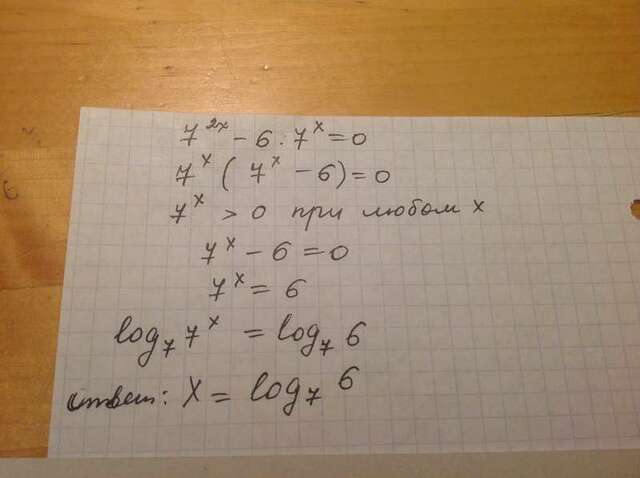 7^{2x} - 6 · 7^x = 0
7^x ( 7^x - 6) = 0
7^x > 0 при любом x
7^x - 6 = 0
7^x = 6
log_7 7^x = log_7 6
ответ: x = log_7 6